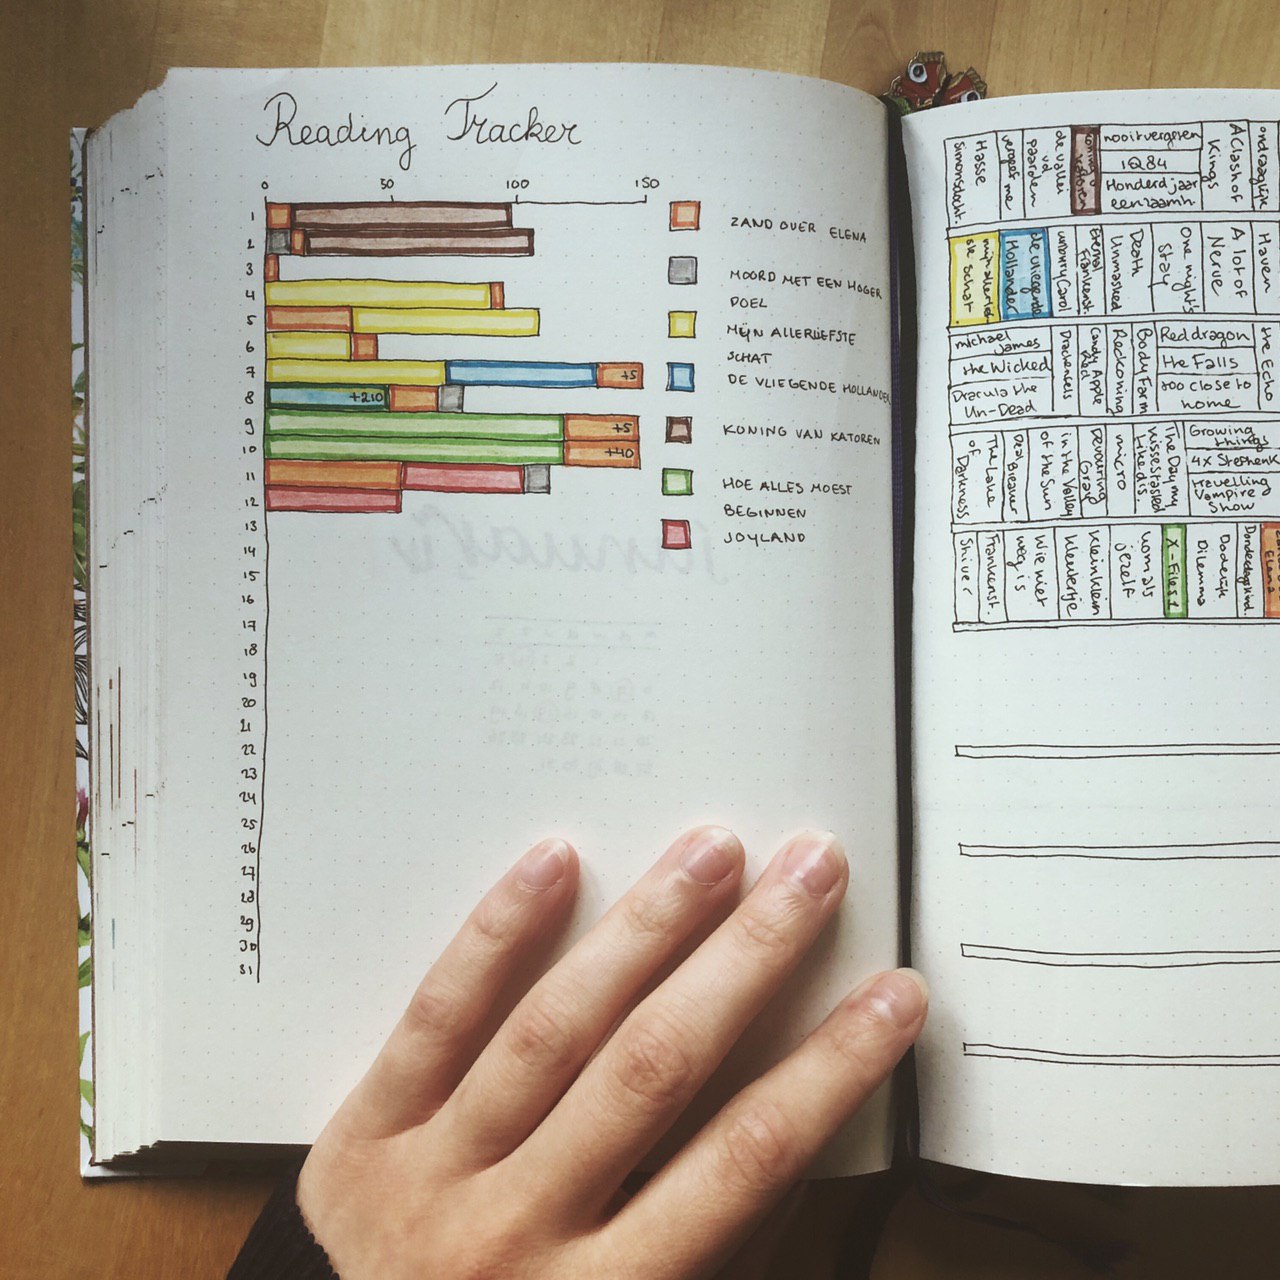 Reading Tracker
0 50 100 150
1
2
3
4
5
6
7 +5
8 +210
9 +5
10 +40
11
12
13
14
15
16
17
18
19
20
21
22
23
24
25
26
27
28
29
30
31
ZAND OVER ELENA
MOORD MET EEN HOGER
DOEL
MIJN ALLERLIEFSTE
SCHAT
DE VLIEGENDE HOLLANDER
KONING VAN KATOREN
HOE ALLES MOEST
BEGINNEN
JOYLAND
Hasse
simonsdocht.
vergeet me
de vallei
vd
paarden
koning
katoren
nooit vergeten
1Q84
Honderd jaar
eenzaamh
A Clash of
Kings
ondraaglijk
mijn allerlief
ste schat
de vliegende
Hollander
Eternal
Frankenst.
Death
Unmasked
One night's
Stay
A lot of
Nerve
Haven
michael
James
the Wicked
Dracula the
Un-Dead
Drachenfels
Candy Apple
Red
Reckoning
Body Farm
Red dragon
the Falls
too close to
home
the Echo
The Lake
of Darkness
Deal Breaker
of the Sun
in the Valley
Devouring
Gray
micro
The Day my
Growing
things
4x Stephenk
travelling
Vampire
Show
Shiver
Frankenst.
Wie niet
weg is
klein klein
kleutertje
iemand als
jezelf
X-Files 1
Dodelijk
Dilemma
Donderdagskind
Elena